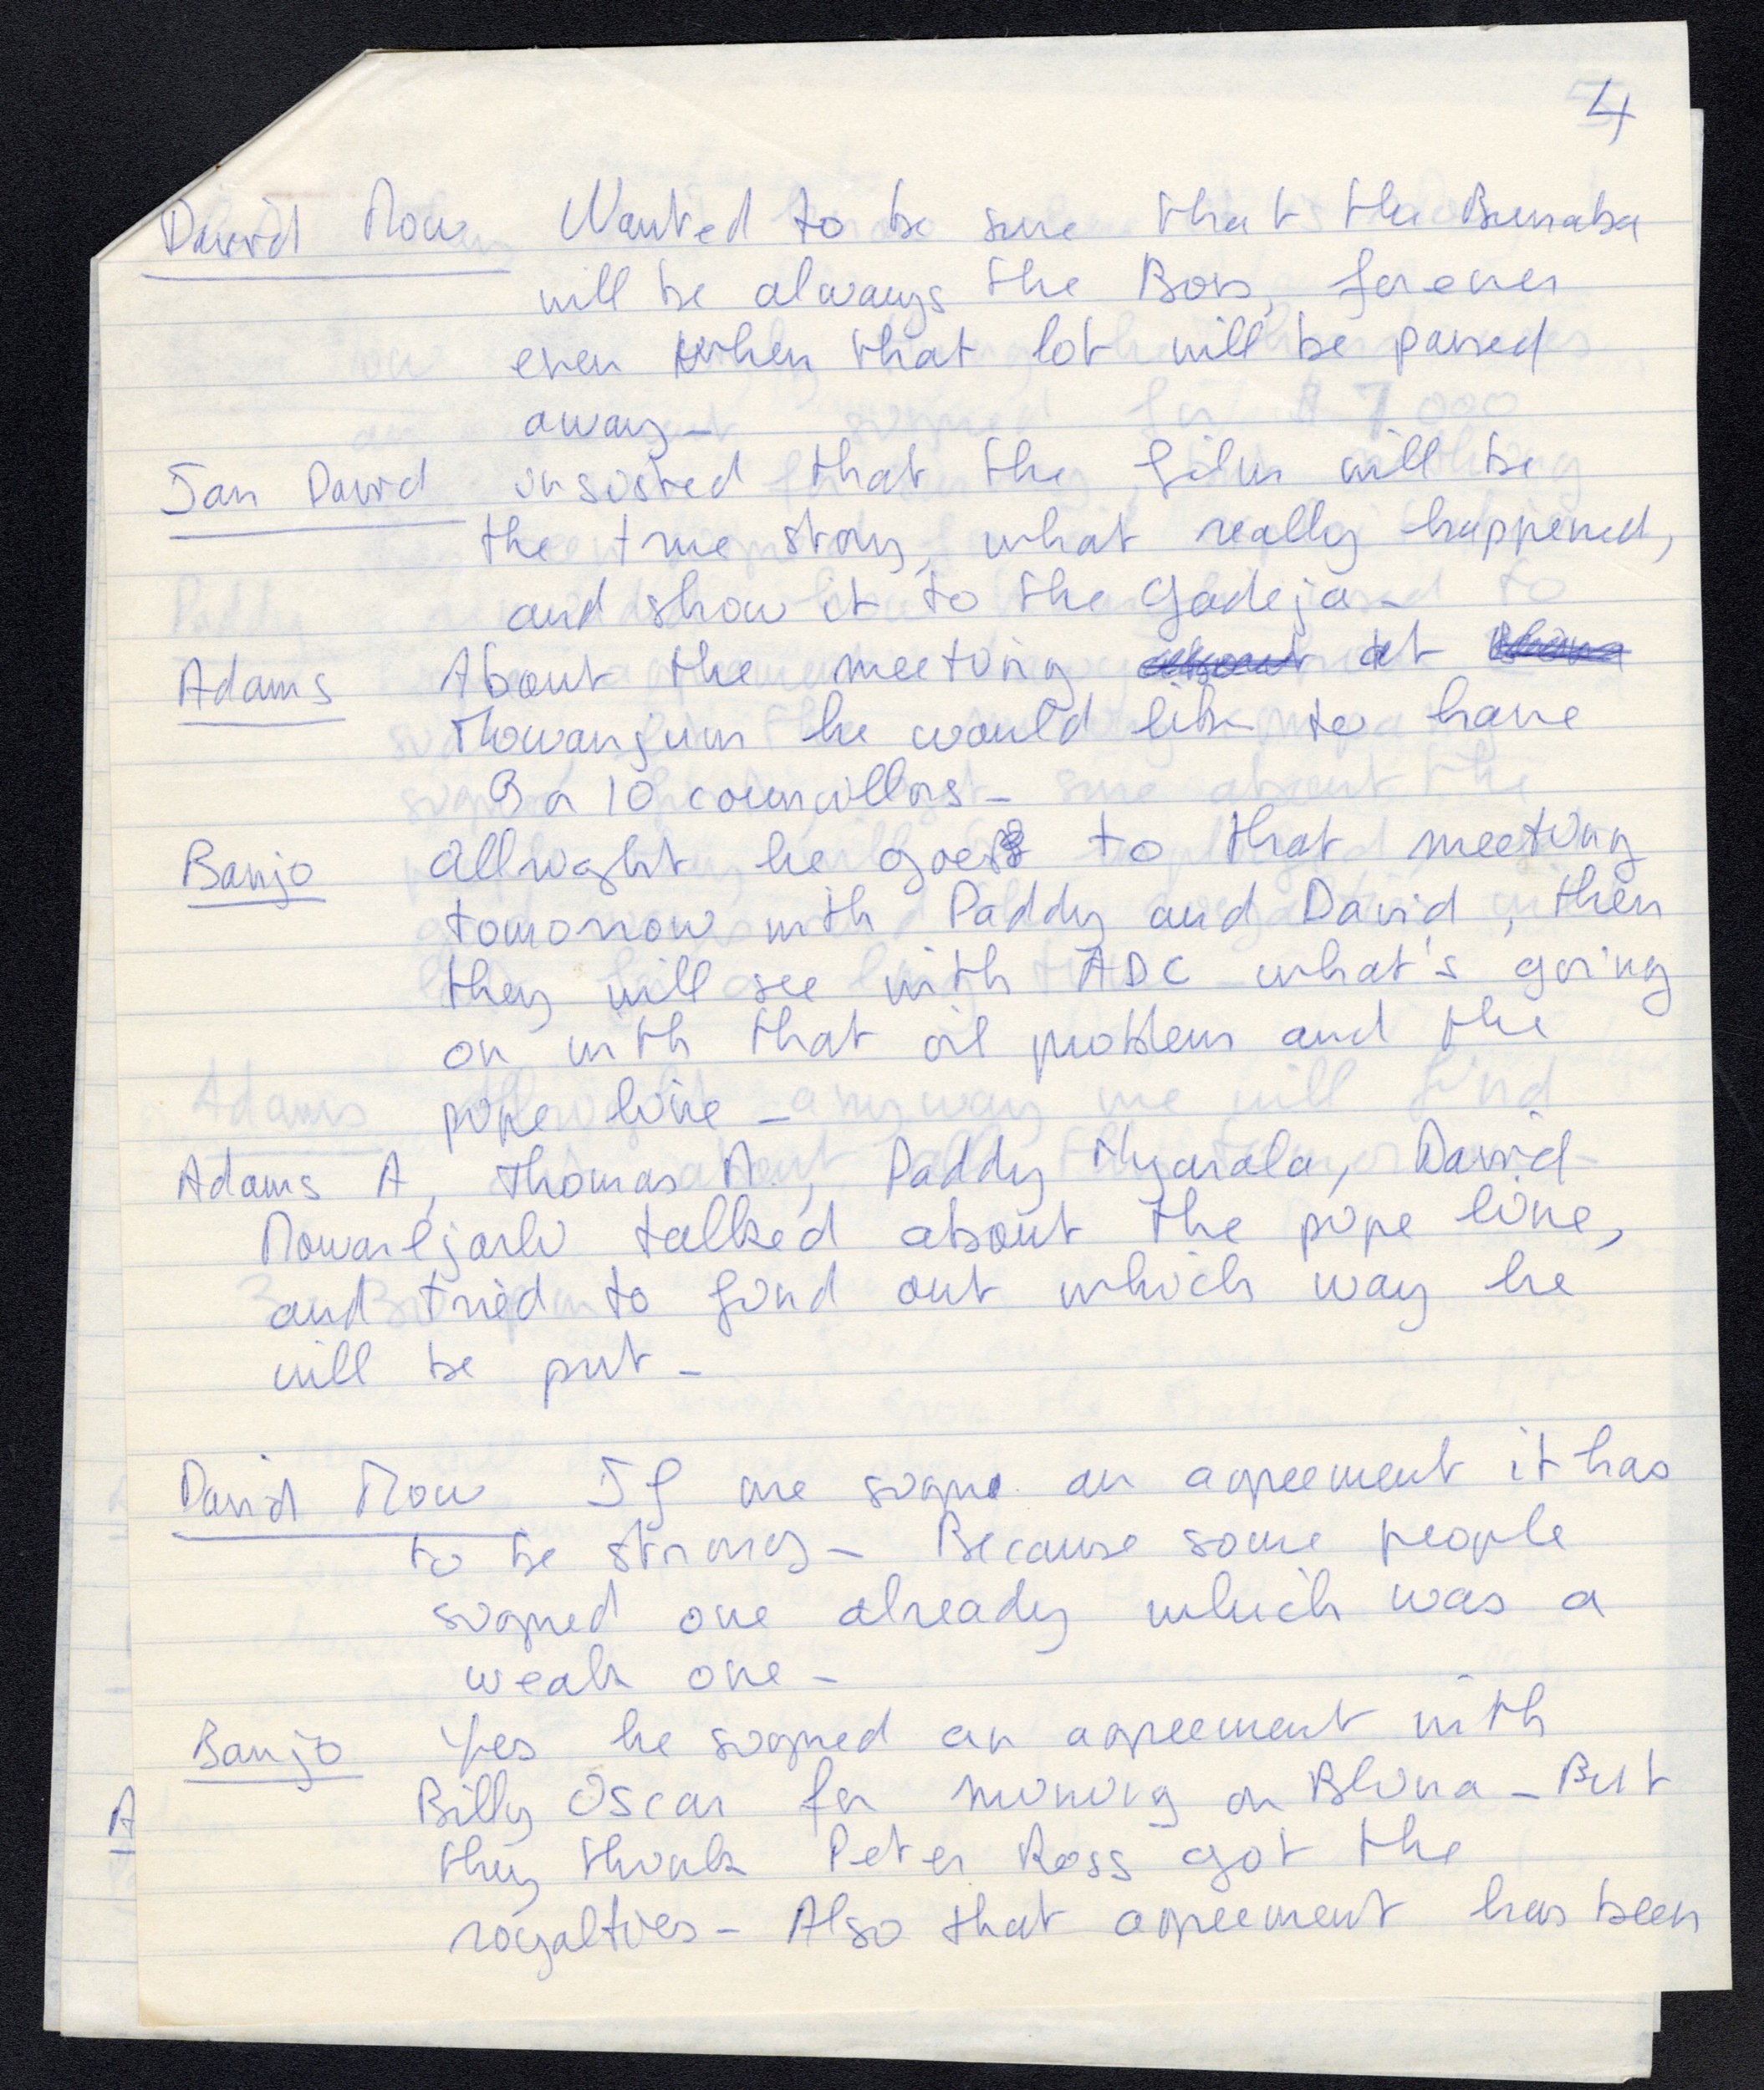 4
David Mow Wanted to be sure that the Bunaba
will be always the Boss, forever
even when that lot will be passed
away_
Ian David insisted that the film will be
the true story, what really happened,
and show it to the Gadeja_
Adams About the meeting about at
Mowanjum he would like to have
councillors_
Banjo allright he goes to that meeting
tomorrow with Paddy and David, then
they will see with ADC what's going
on with that oil problem and the
pipe line_
Adams A, Thomas A., Paddy Nyarala, David
Mowaljarli talked about the pipe line,
and tried to find out which way he
will be put_
David Mow If we signe an agreement it has
to be strong_ Because some people
signed one already which was a
weak one_
Banjo Yes he signed an agreement with
Billy Oscar for mining on Blina_ But
they think Peter Ross got the
royalties_ Also that agreement has been
A